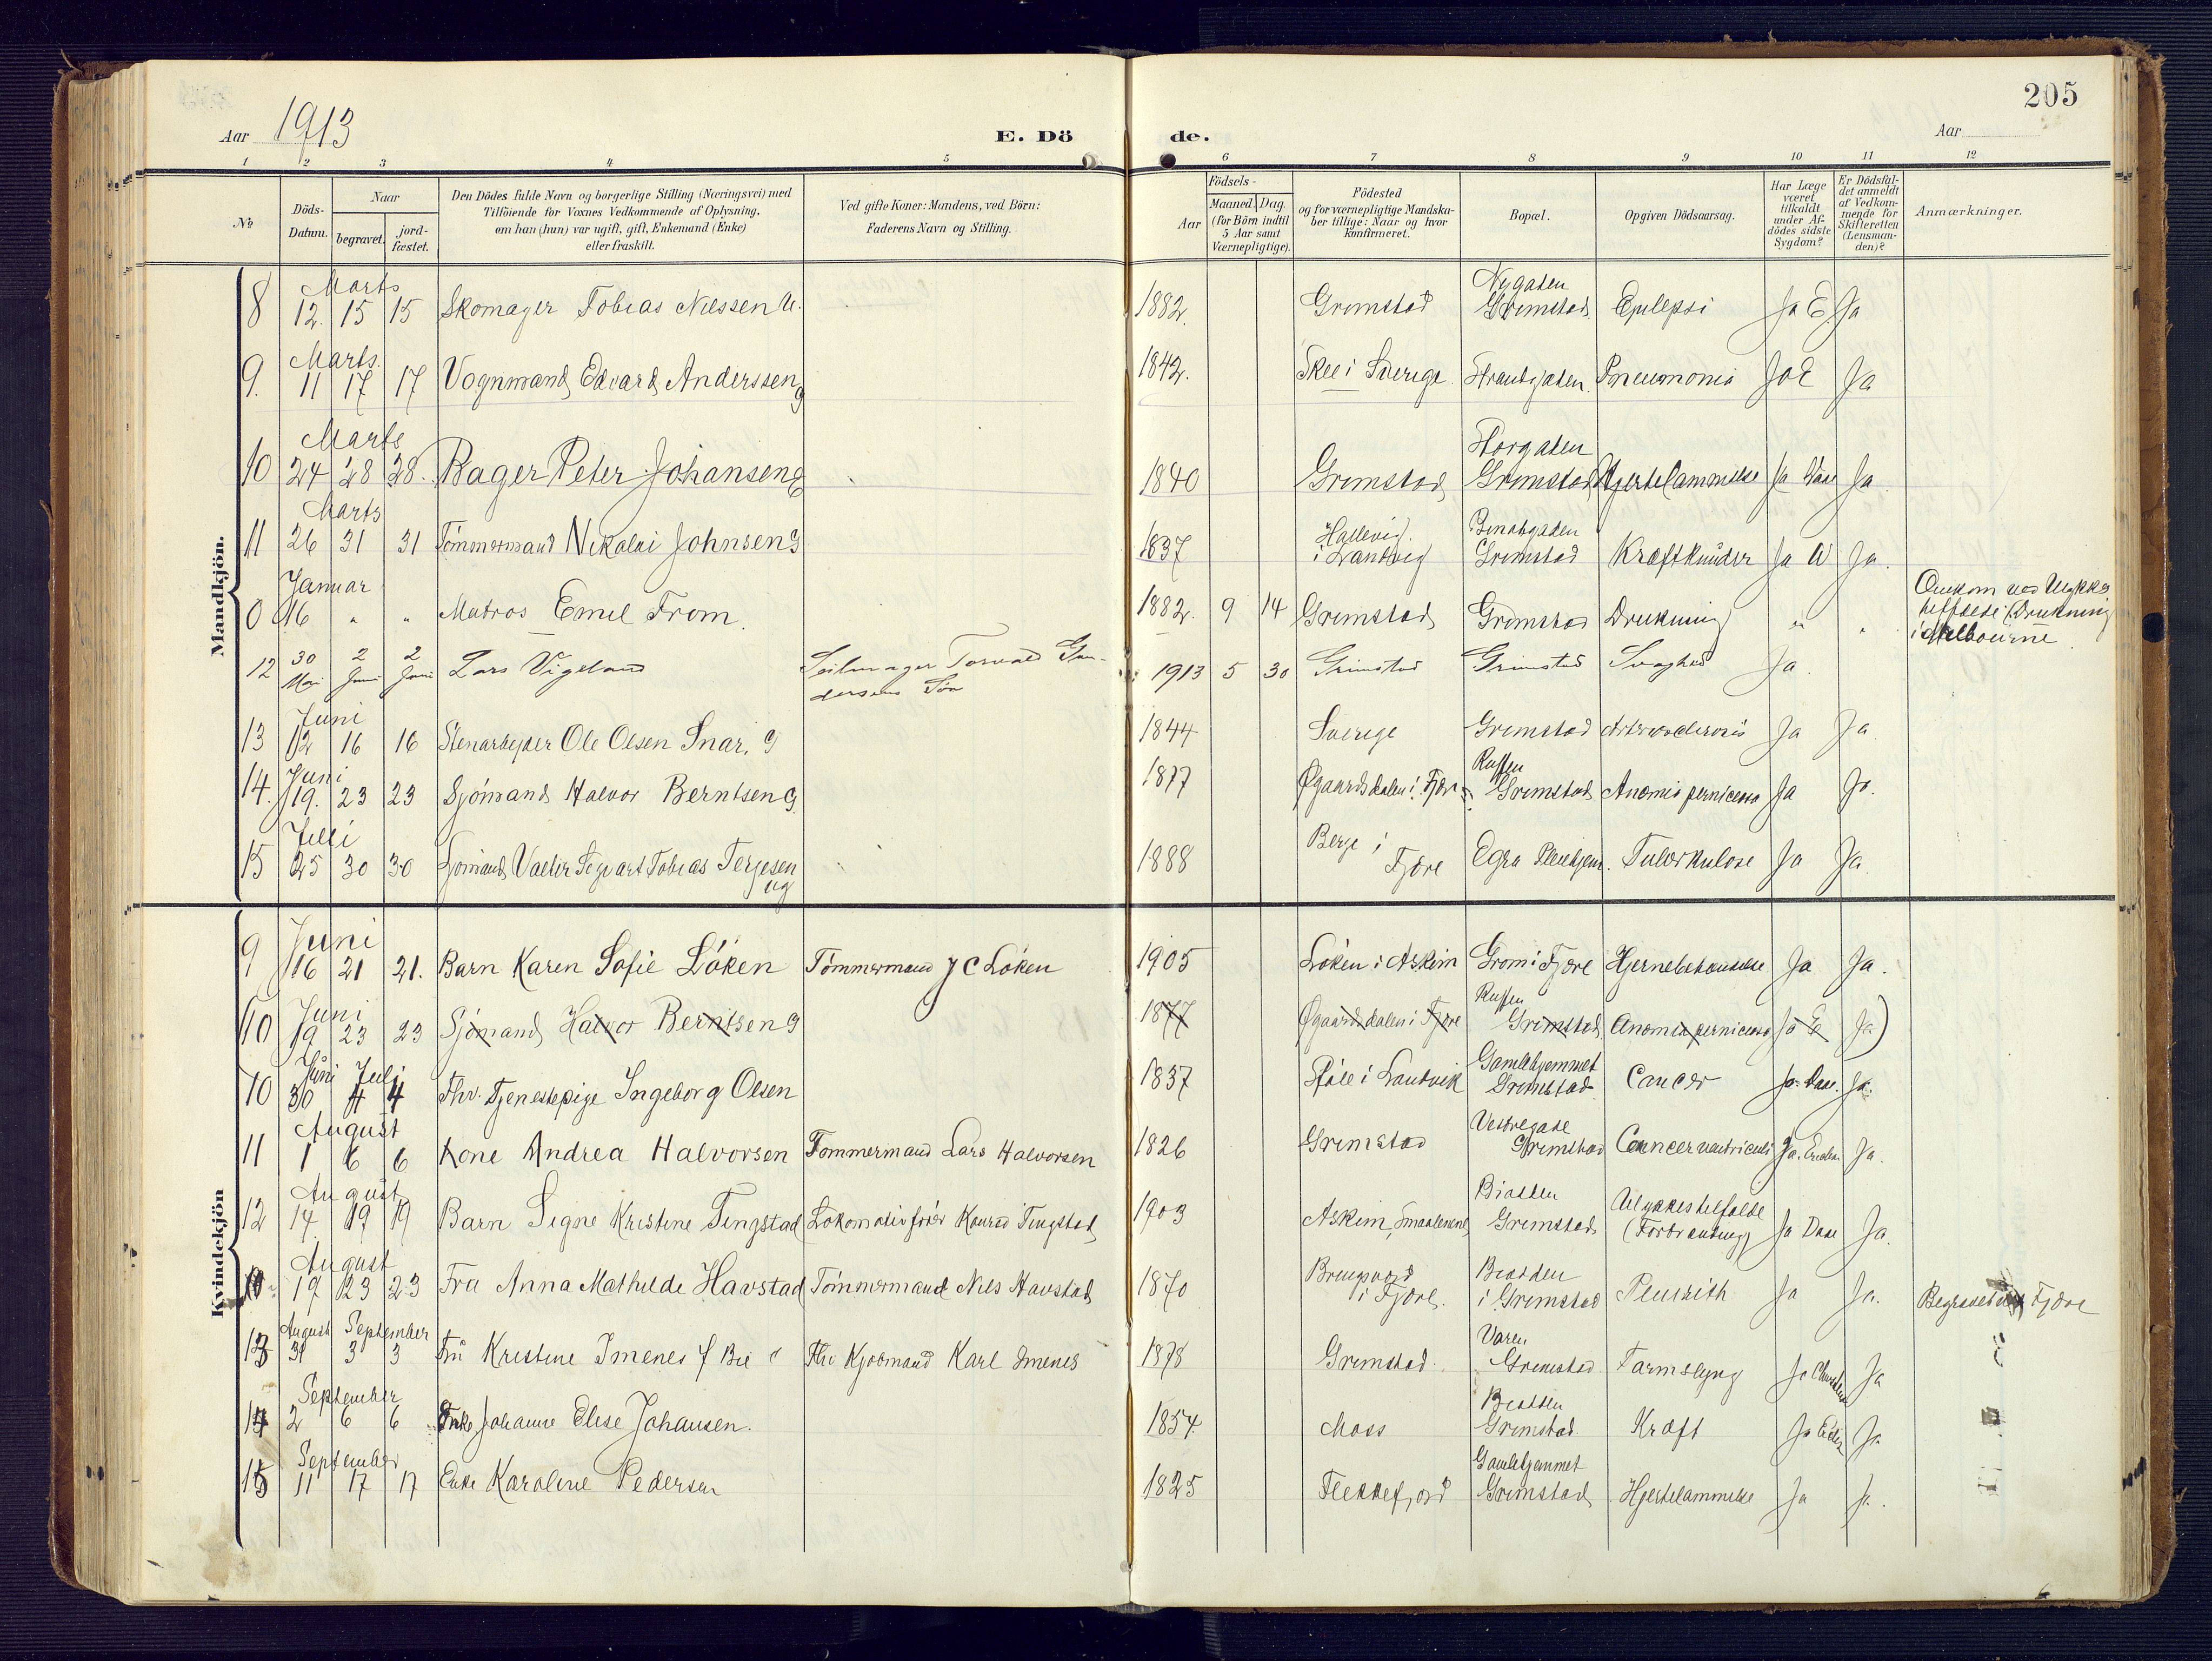 205
Aar 1913
E. Dö de.
Aar
1 2 3 4 5 6 7 8 9 10 11 12
No
Döds-Datum.
Naar
begravet.
jord-fæstet.
Den Dödes fulde Navn og borgerlige Stilling (Næringsvei) med
Tilföiende for Voxnes Vedkommende af Oplysning,
om han (hun) var ugift, gift, Enkemand (Enke)
eller fraskilt.
Ved gifte Koner: Mandens, ved Börn:
Faderens Navn og Stilling.
Födsels-
Aar
Maaned. Dag.
(for Börn indtil
5 Aar samt
Værnepligtige).
Födested
og for værnepligtige Mandska-
ber tillige: Naar og hvor
konfirmeret.
Bopæl.
Opgiven Dödsaarsag.
Har Læge
været
tilkaldt
under Af-
dödes sidste
Sygdom?
Er Dödsfal-
det anmeldt
af Vedkom-
mende for
Skifteretten
(Lensman-
den)?
Anmærkninger.
Mandkjön.
Marts Nygaden
8 12. 15 15 Skomager Tobias Nilssen U. 1882. Grimstad Grimstad Epilepsi Ja E. Ja
Marts.
9. 11 17 17 Vognmand Edvard Anderssen g 1842. Skee i Sverige Strandgaden Pneumonia Ja E Ja
Marts Storgaden
10 24 28 28. Bager Peter Johansen g 1840 Grimstad Grimstad Hjertelammelse Ja Daae Ja
Marts Hallevig. Binabgaden
11 26 31 31 Tömmermand Nikolai Johnsen g 1837 i Landvig Grimstad Kræftknuder Ja Ja.
Januar Omkom ved Ulykkes
0 16 " " Matros Emil From. 1882. 9 14 Grimstad Grimstad Drukning " " tilfælde (Drukning
i Melbourne
12 30 Mai 2 Juni 2 Juni Lars Vigeland Seilmager Torvald Gun-
dersens Sön 1913 5 30 Grimstad Grimstad Svaghed Ja.
Juni
13 12 16 16 Stenarbeider Ole Olsen Snar. g 1844 Sverige Grimstad Ja Ja
Juni
14. 19. 23 23 Sjömand Halvor Berntsen g 1877 Øgaardsdalen i Fjære Grimstad Anæmia perniciosa Ja Ja.
Juli Berge i
15 25 30 30 Sjömand Valter Sigvart Tobias Terjesen ug 1888 Fjære Egra Pleiehjem. Tuberkulose Ja Ja
Kvindekjön
Juni
9 16 21 21. Barn Karen Sofie Löken Tömmermand J C Löken 1905 Löken i Askim Grom i Fjære Hjernebetændelse Ja Ja.
Juni
10 19 23 23 Sjömand Halvor Berntsen g 1877 Øgaardsdalen i Fjære Grimstad Anæmia perniciosa Ja E Ja)
Juni Juli Gamlehjemmet
10 30 4 4 Fhv. Tjenestepige Ingeborg Olsen 1837 i Landvik Grimstad Cancer Ja. Daae. Ja.
August Vestregate
11 1 6 6 Kone Andrea Halvorsen Tömmermand Lars Halvorsen 1826 Grimstad Grimstad Cancer ventriculi Ja. Ja.
August Biodden Ulykkestilfælde
12 14 19 19 Barn Signe Kristine Tingstad Lokomotivförer Konrad Tingstad 1903 Askim, Smaalenene Grimstad (Forbrænding) Ja Daae Ja.
August Biodden
19 23 23 Fru Anna Mathilde Havstad Tömmermand Nils Havstad 1870 i Fjære. i Grimstad Pleurith Ja Ja. Begravet Fjære
August September Varen
13 31 3 3 Fru Kristine Imenes f Bie Fhv Kjöbmand Karl Imenes 1878 Grimstad. Grimstad Tarmslyng Ja Ja
September Biodden
14 2 6 6 Enke Johanne Elise Johansen. 1854 Moss Grimstad Kræft Ja Ja
September Gamlehjemmet
15 11 17 17 Enke Karoline Pedersen 1825 Flekkefjord Grimstad Hjertelammelse Ja Ja.